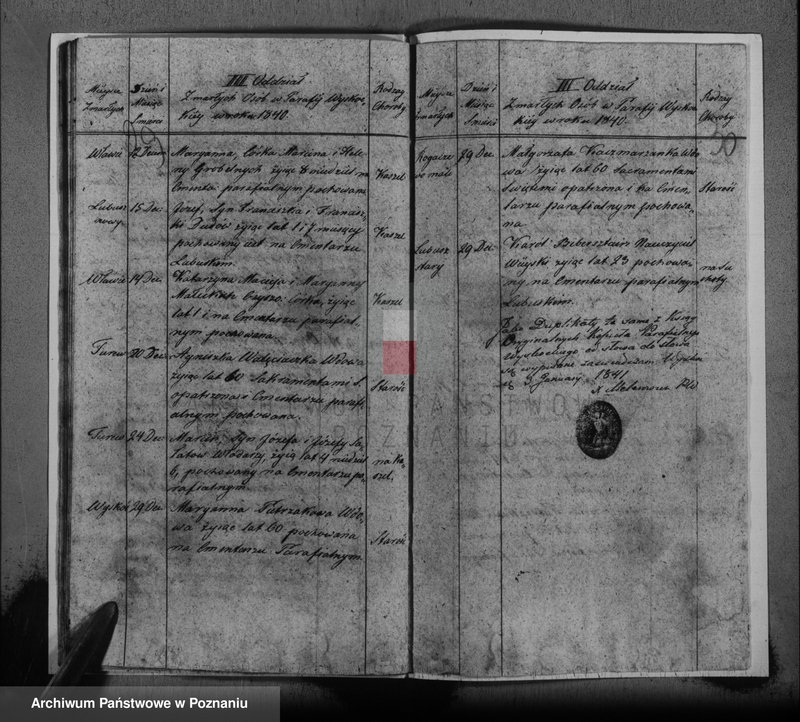 Miejsce Zmarłych
Dzień i Miesiąc Śmierci
III Oddział
Zmarłych Osób w Parafij Wyskoc
kiej w roku 1840.
Rodzaj Choroby
12 Decem
Maryanna, Córka Marcina i Hele
ny Grobelnych żyjąc
Cmenta: parafialnym pochowana
Kaszel
15 Dec:
Józef, Syn Franciszka i
żyjąc lat 1 i 7 miesięcy
pochowany jest na Cmentarzu
Lubuskiem.
Kaszel
14 Dec:
Katarzyna Macieja i Maryanny
Córka, żyjąc
lat 1 na Cmentarzu parafial-
nym pochowana.
Kaszel
Turew
20 Dec:
Agnieszka Wdowa
żyjąc lat 60 Sakramentami S.
opatrzona Cmentarzu paraf-
ialnym pochowana.
Starość
Turew
24 Dec:
Marcin, Syn Józefa i Józefy
Włodarzy, żyjąc lat 4 niedziel
6, pochowany na Cmentarzu pa-
rafialnym.
na Ka-
szel.
Wyskoć
29 Dec:
Maryanna Wdo-
wa żyjąc lat 60 pochowana
na Cmentarzu Parafialnym
Starość
Miejsce Zmarłych
Dzień i Miesiąc Śmierci
III Oddział
Zmarłych Osób w Parafij Wyskoc
kiej w roku 1840.
Rodzaj Choroby
30
29 Dec
Małgorzata Kaczmarzanka Wdo
wa żyjąc lat 60 Sacramentami
Świętemi opatrzona i na Cmen-
tarzu parafialnym pochowa-
na
Starość
Lubosz
stary
29 Dec
Karol Biberstein Nauczyciel
Wiejski żyjąc lat 23 pochowa-
ny na Cmentarzu parafialnym
Lubuskiem.
na Su
choty.
Jako Duplikaty te same z Księg
Oryginalnych Kościoła Parafialnego
Wyskockiego od słowa do słowa
są wypisane zaświadczam Wyskoć
January 1841
ARCHIWUM PAŃSTWOWE
W POZNANIU
Archiwum Państwowe w Poznaniu